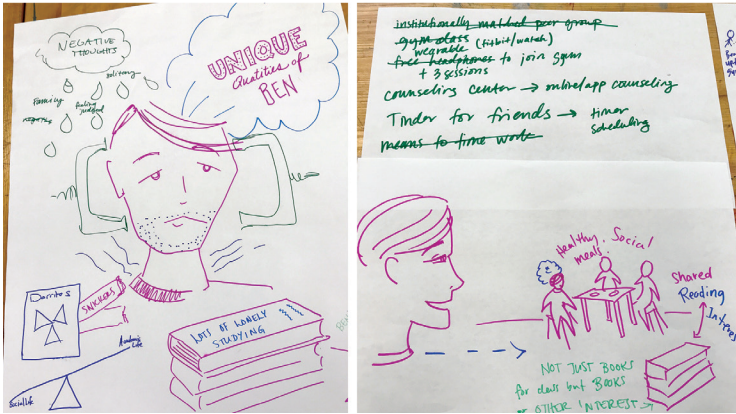 NEGATIVE
THOUGHTS
solitary
Ramony
feeling
judged
negative
UNIQUE
Qualities of
BEN
Dorritos
SNICKERS
LOTS OF LONELY
STUDYING
Academic
Life
Social life
institutionally matched peer group
gym class
wearable (fitbit/watch)
free headphones to join gym
+ 3 sessions
counseling center → online/app counseling
Tinder for friends → timer
scheduling
means to time work
Healthy, Social
meals
Shared
Reading
Interes
NOT JUST BOOKS
for class but BOOKS
OF OTHER INTEREST →